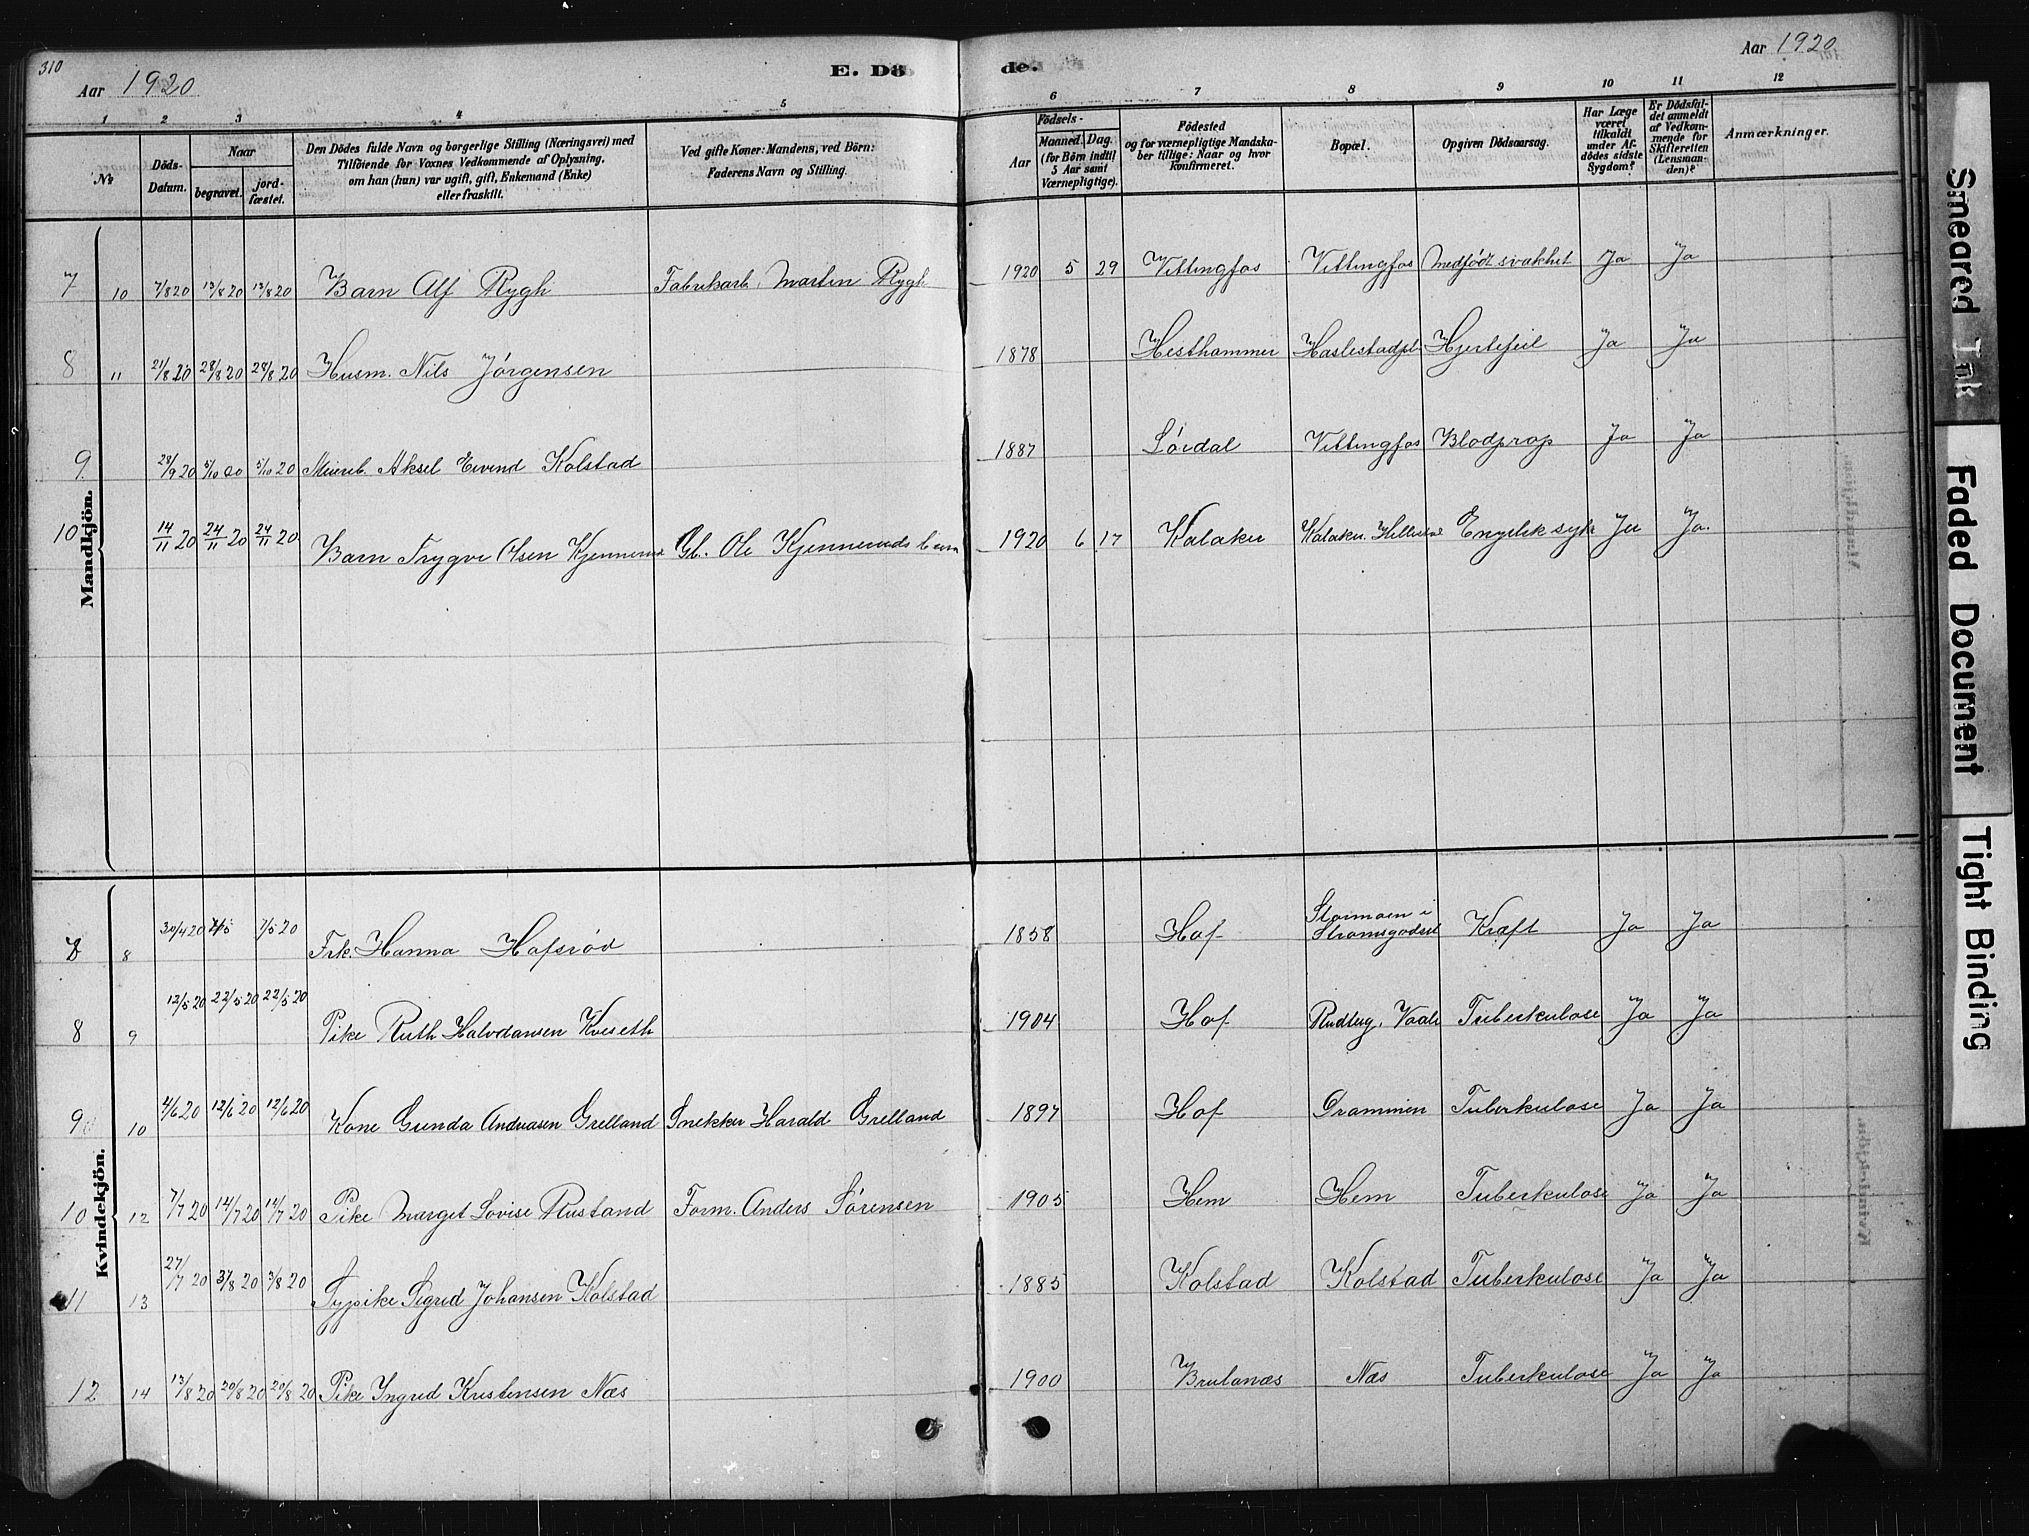 310
Aar 1920
E. Dö
de.
Aar 1920
1 2 3 4 5 6 7 8 9 10 11 12
№
Döds-Datum.
Naar
begravet.
jord-fæstet.
Den Dödes fulde Navn og borgerlige Stilling (Næringsvei) med
Tilföiende for Voxnes Vedkommende af Oplysning,
om han (hun) var ugift, gift, Enkemand (Enke)
eller fraskilt.
Ved gifte Koner: Mandens, ved Börn:
Faderens Navn og Stilling.
Födsels-
Aar
Maaned. Dag.
(for Börn indtil
5 Aar samt
Værnepligtige).
Födested
og for værnepligtige Mandska-
ber tillige: Naar og hvor
konfirmeret.
Bopæl.
Opgiven Dödsaarsag.
Har Læge
været
tilkaldt
under Af-
dödes sidste
Sygdom?
Er Dödsfal-
det anmeldt
af Vedkom-
mende for
Skifteretten
(Lensman-
den)?
Anmærkninger.
Mandkjön.
7 10 7/8 20 13/8 20 13/8 20 Barn Alf Rygh Fabrikarb. Martin Rygh 1920 5 29 Vittingfos Vittingfos Medfødt svakhet Ja Ja
8 11 21/8 20 28/8 20 28/8 20 Husm. Nils Jørgensen 1878 Hesthammer Haslestadpl. Hjertefeil Ja Ja
9 28/9 20 5/10 20 5/10 20 Aksel Eivind Kolstad 1887 Sørdal Vittingfos Blodprop Ja Ja
10 14/11 20 24/11 20 24/11 20 Barn Trygve Olsen Kjennerud Gb. Ole Kjenneruds barn 1920 6 17 Kalaker Kalaker. Engelsk syke Ja Ja.
Kvindekjön.
7 8 30/4 20 7/5 7/5 20 Frk. Hanna Hafsrød 1858 Hof Stormoen i Strømsgodset Kræft Ja Ja
8 9 12/5 20 22/5 20 22/5 20 Pike Ruth Halvdansen Kveseth 1904 Hof Rudberg, Vaale Tuberkulose Ja Ja
9 10 4/6 20 12/6 20 12/6 20 Kone Gunda Andreasen Grelland Snekker Harald Grelland 1897 Hof Drammen Tuberkulose Ja Ja
10 12 7/7 20 14/7 20 14/7 20 Pike Marget Lovise Rustand Form. Anders Sørensen 1905 Hem Hem Tuberkulose Ja Ja
11 13 27/7 20 3/8 20 3/8 20 Sypike Sigrid Johansen Kolstad 1885 Kolstad Kolstad Tuberkulose Ja Ja
12 14 13/8 20 20/8 20 20/8 20 Pike Ingrid Kristensen Næs 1900 Brulanæs Næs Tuberkulose Ja Ja
Smeared Ink
Faded Document
Tight Binding